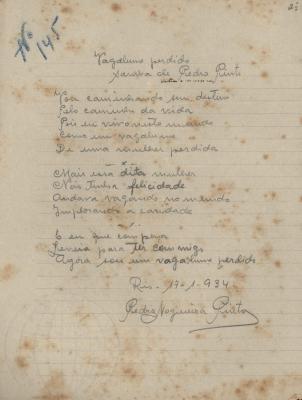 25
Nº 145
Vagalume perdido
Samba de Pedro Pinto
Vou caminhando sem destino
Pelo caminho da vida
Pois eu vivo neste mundo
Como um vagalume
De uma mulher perdida
Mais essa dita mulher
Não tinha felicidade
Andava vagando no mundo
Implorando a caridade
E eu que
Levei-a para ter commigo
Agora sou um vagalume perdido
Rio - 17-1-934
Pedro Nogueira Pinto